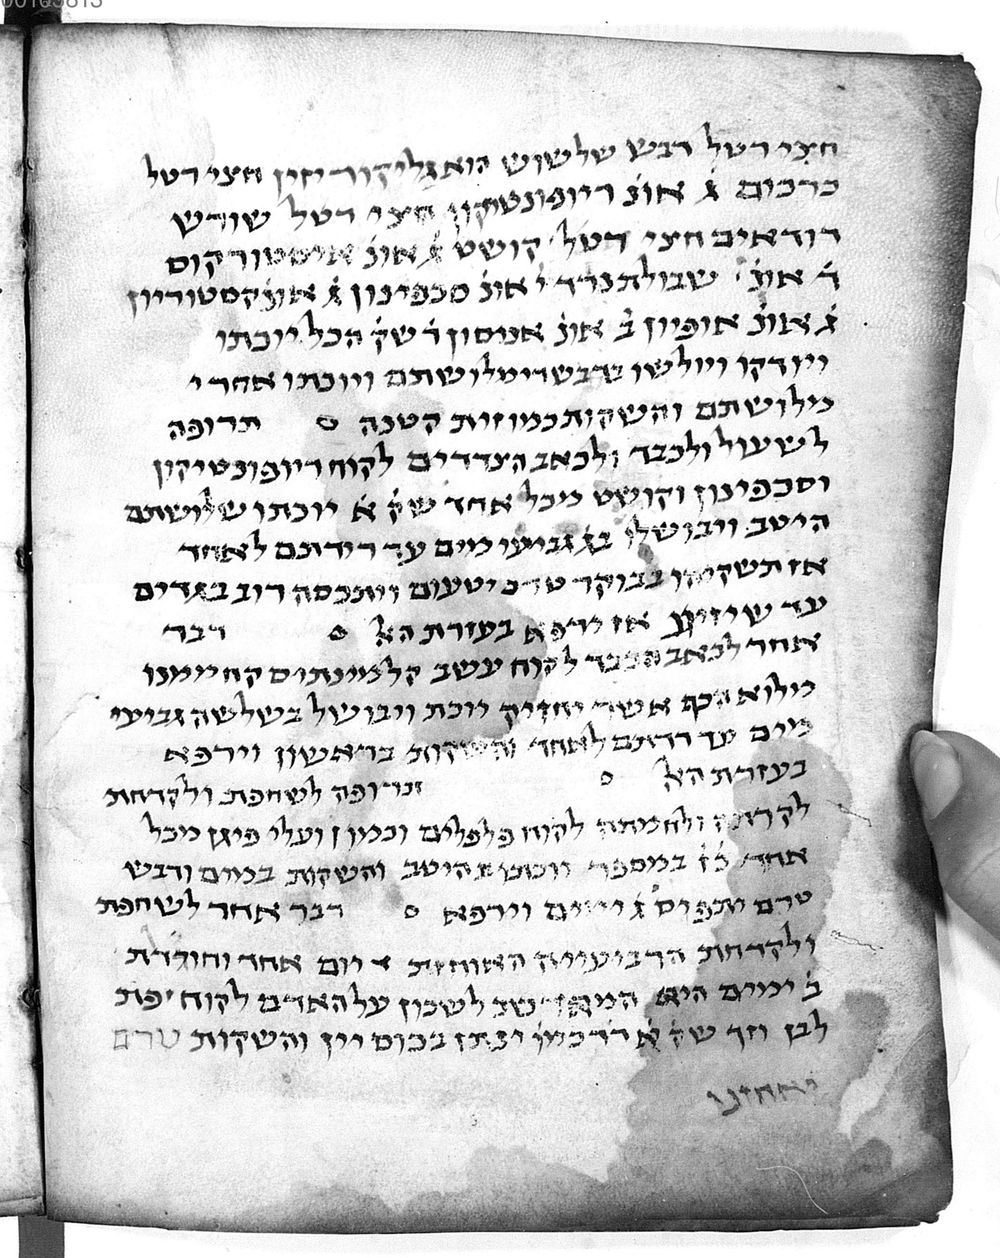 00165813
חצי רטל דבש שלשוש הוא גליקוריזין חצי רטל
כרכום ג̇ אונ̇ ריופונטיקון חצי רטל שורש
דודאים חצי רטל קושט ג̇ אונ̇ איסטורקוס
ד̇ אונ̇ שבולת נרד י̇ אונ̇ סכפינון ג̇ אונ̇ קסטוריון
ג̇ אונ̇ אופיון ב̇ אונ̇ אניסון ו̇ שק̇ הכל יוכתו
ויודקו ויולשו בדבש וימלושתם ויוכתו אחרי
מלושתם והשקות כמוזית קטנה תרופה
לשעול ולכבד ולכאב הצדדים לקוח ריופונטיקון
וסכפינון וקושט מכל אחד שק̇ א̇ יוכתו שלושתם
היטב ויבושלו בג̇ גביעי מים עד רידתם לאחד
אז תשקיהו בבוקר טרם יטעום ויתכסה רוב בגדים
עד שיזיע אז ירפא בעזרת האל דבר
אחר לכאב הכבד לקוח עשב קלמינתיס קח ממנו
מלוא הכף אשר יחזיק יוכת ויבושל בשלשה גביעי
מים עד רדתם לאחד והשקות בראשון וירפא
בעזרת האל תרופה לשחפת ולקדחת
לקרתה ולחמתה לקוח פלפלים וכמון ועלי פיגן מכל
אחד כ̇ז̇ במספר ויכתו היטב והשקות במים ודבש
טרם יתפיס ג̇ ימים וירפא דבר אחר לשחפת
ולקדחת הרביעיית האוחזת יום אחד וחודלת
ב̇ ימים היא לשכון על האדם לקוח יפת
לבן וזך שק̇ א̇ יבתן בכוס יין והשקות טרם
יאחזנו